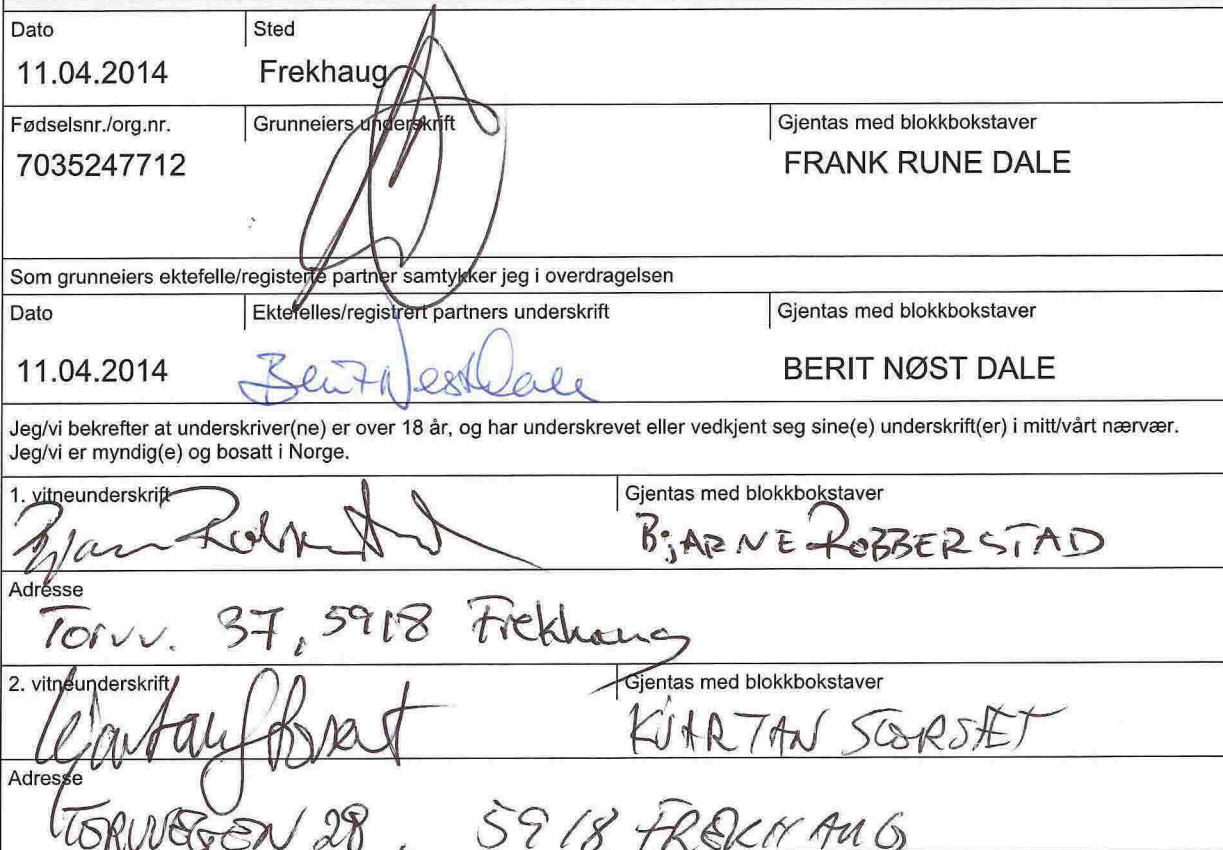 Dato Sted
11.04.2014 Frekhaug
Fødselsnr./org.nr. Grunneiers underskrift Gjentas med blokkbokstaver
7035247712 FRANK RUNE DALE
Som grunneiers ektefelle/registerte partner samtykker jeg i overdragelsen
Dato Ektefelles/registrert partners underskrift Gjentas med blokkbokstaver
11.04.2014 Berit Nøst Dale BERIT NØST DALE
Jeg/vi bekrefter at underskriver(ne) er over 18 år, og har underskrevet eller vedkjent seg sine(e) underskrift(er) i mitt/vårt nærvær.
Jeg/vi er myndig(e) og bosatt i Norge.
1. vitneunderskrift Gjentas med blokkbokstaver
BJARNE ROBBERSTAD
Adresse
Torvv. 37, 5918 Frekhaug
2. vitneunderskrift Gjentas med blokkbokstaver
KJARTAN STORSÆT
Adresse
TORVVEGEN 28, 5918 FREKHAUG